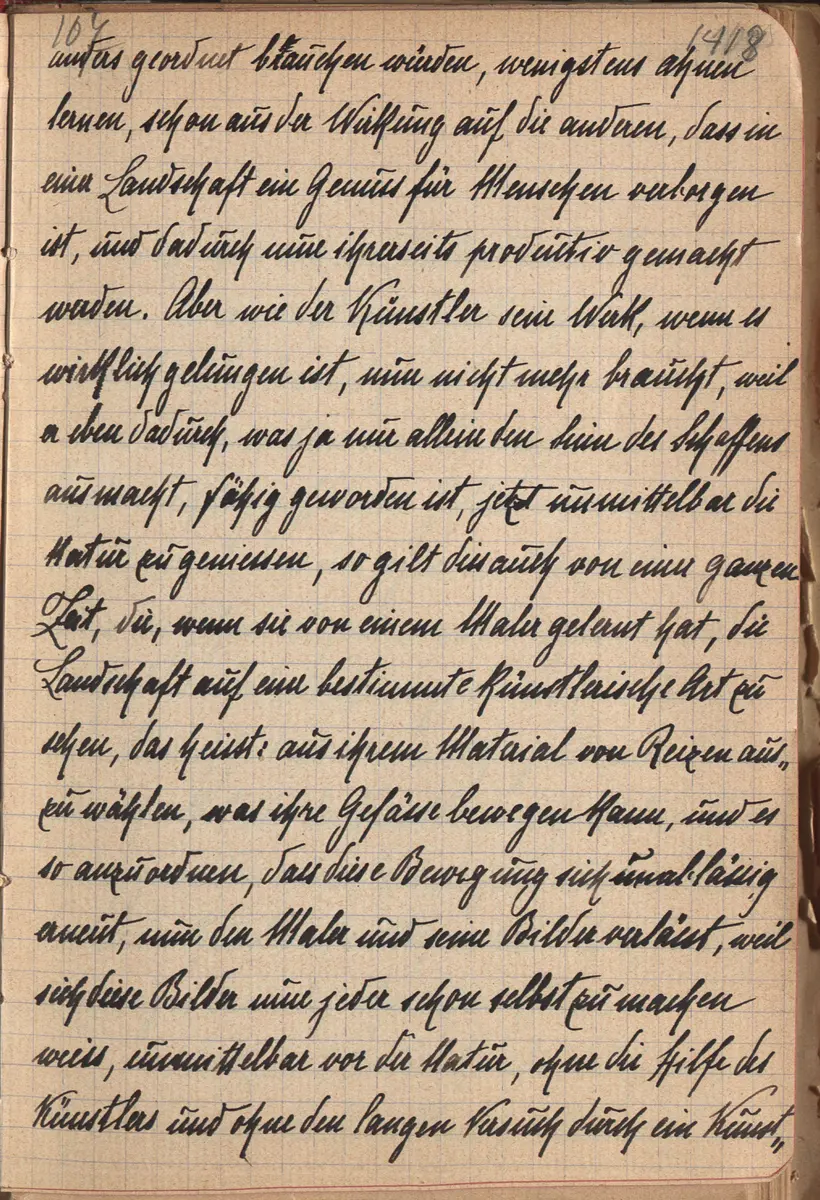 107 1418
anders geordnet brauchen würden, wenigstens ahnen
lernen, schon aus der Wirkung auf die anderen, dass in
einer Landschaft ein Genuss für Menschen verborgen
ist, und dadurch nun ihrerseits produktiv gemacht
werden. Aber wie der Künstler sein Werk, wenn es
wirklich gelungen ist, nun nicht mehr braucht, weil
er eben dadurch, was ja nur allein den Sinn des Schaffens
ausmacht, fähig geworden ist, jetzt unmittelbar die
Natur zu geniessen, so gilt dies auch von einer ganzen
Zeit, die, wenn sie von einem Maler gelernt hat, die
Landschaft auf eine bestimmte künstlerische Art zu
sehen, das heisst: aus ihrem Material von Reizen aus„
zu wählen, was ihre Gefässe bewegen kann, und es
so anzuordnen, dass diese Bewegung sich unablässig
erneut, nun den Maler und seine Bilder verlässt, weil
sich diese Bilder nun jeder schon selbst zu machen
weiss, unmittelbar vor der Natur, ohne die Hilfe des
Künstlers und ohne den langen Versuch durch ein Kunst„